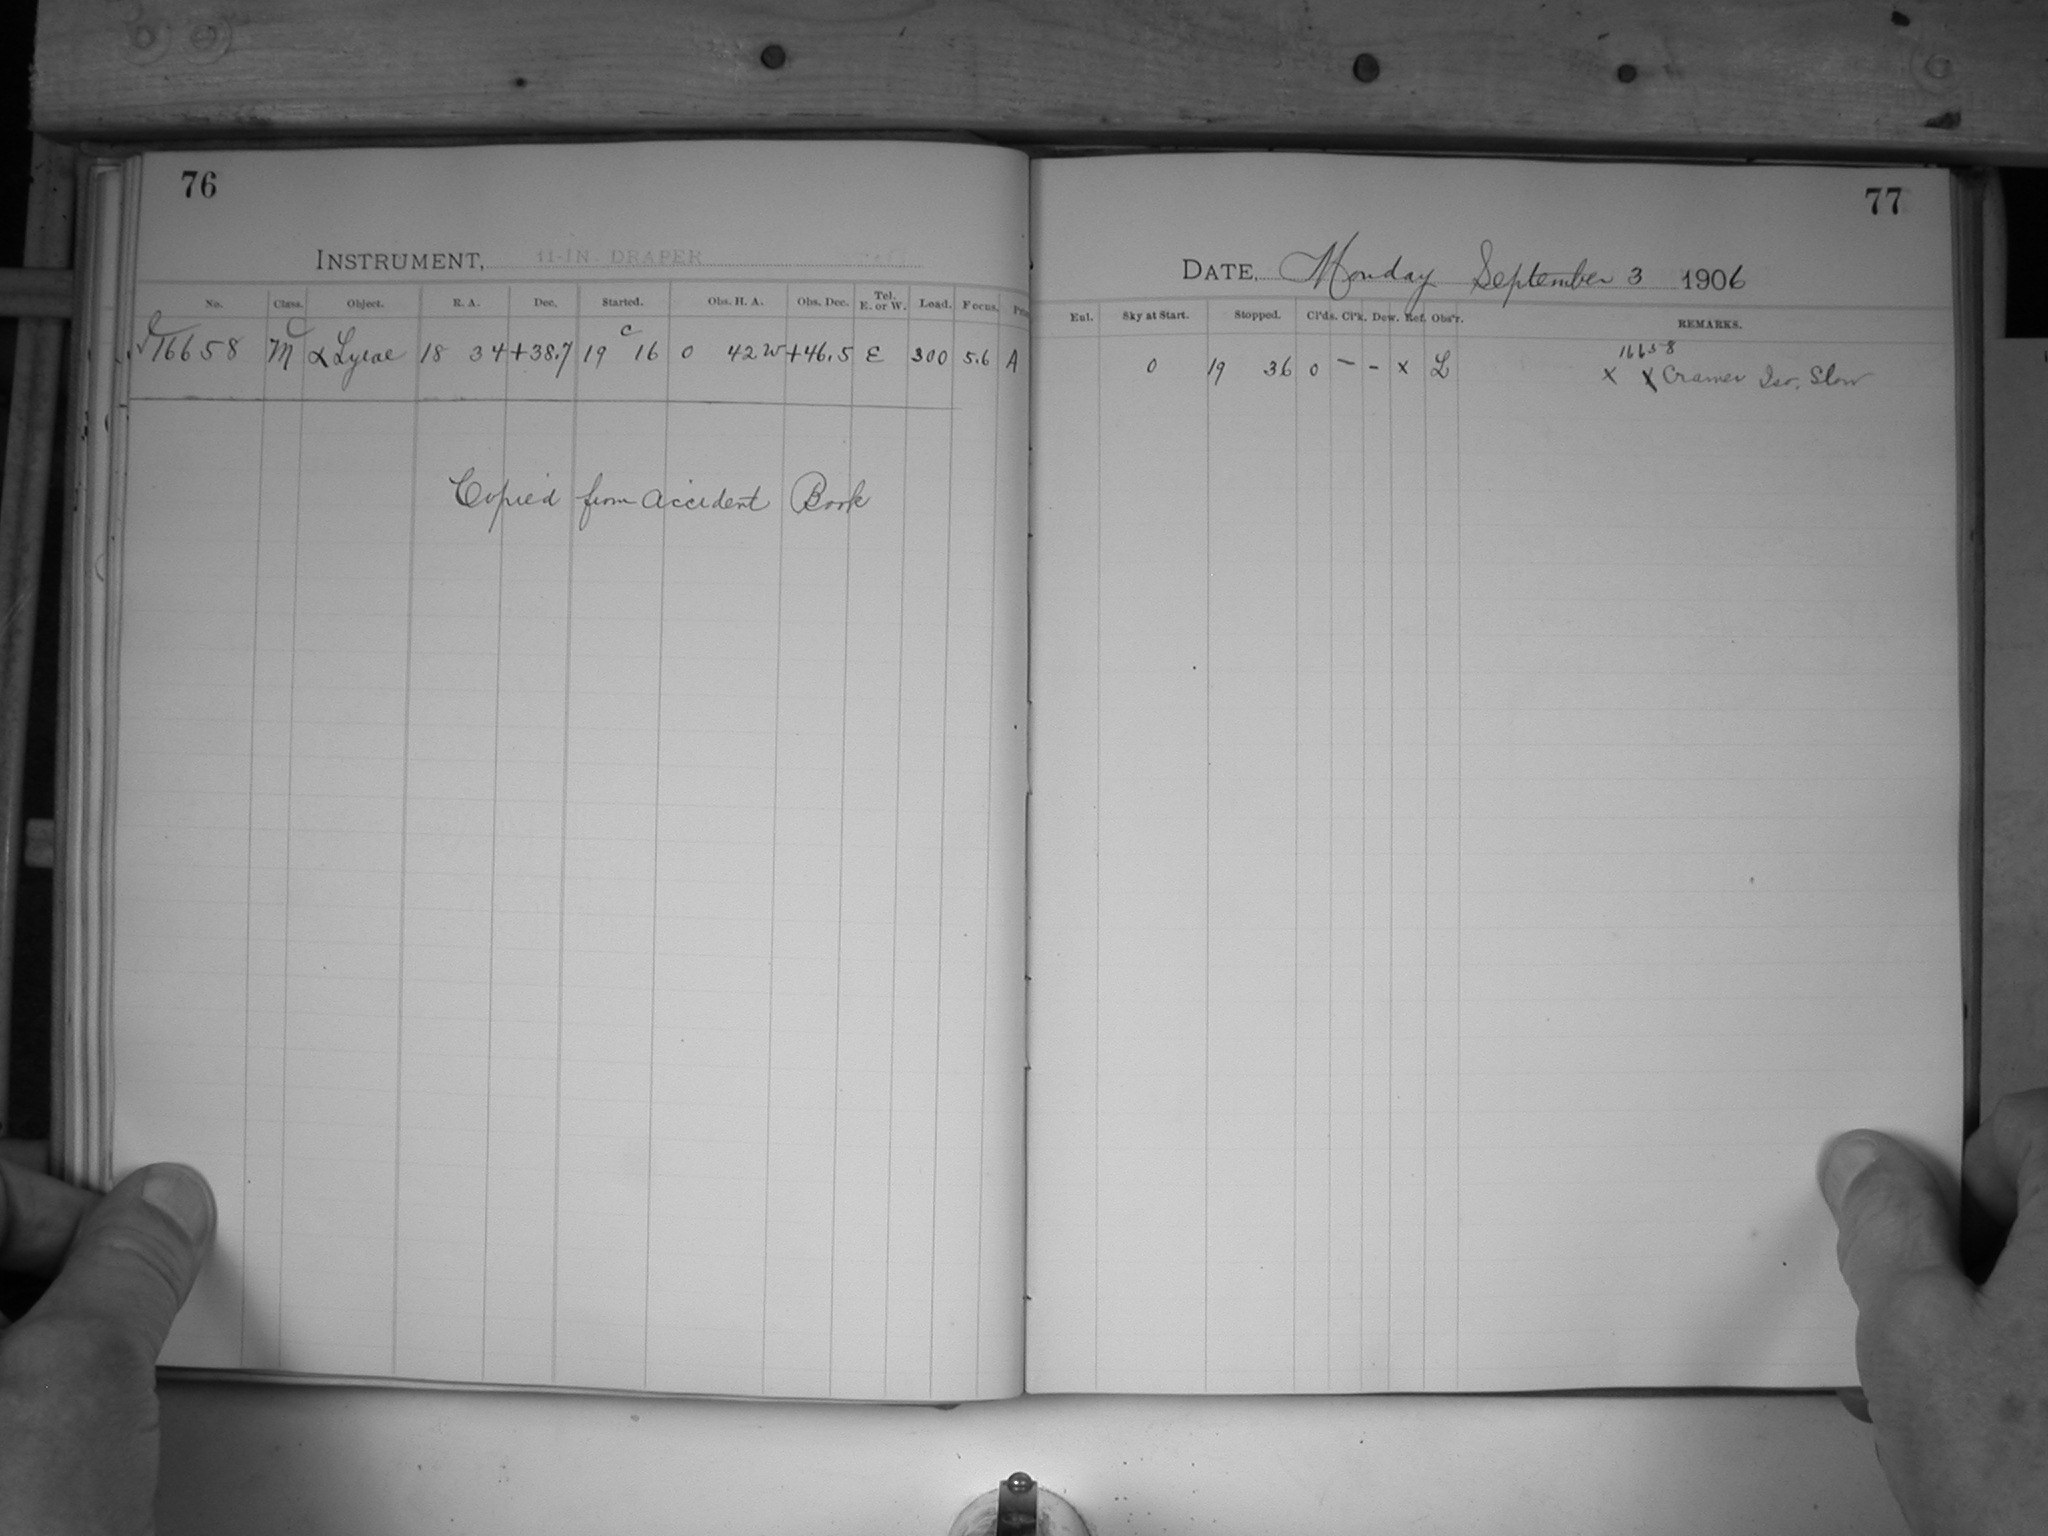 76
INSTRUMENT, 11-IN. DRAPER
No. Class. Object. R. A. Dec. Started. Obs. H. A. Obs. Dec. Tel. E. or W. Load. Focus.
C C
16658 M α Lyrae 18 34 +38.7 19 16 0 42 W +46.5 E 300 5.6 A
Copied from Accident Book
77
DATE, Monday September 3 1906
Eul. Sky at Start. Stopped. Cl'ds. Cl'k. Dew. Ref. Obs'r. REMARKS.
16658
0 19 36 0 – - x L x x Cramer Iso. Slow